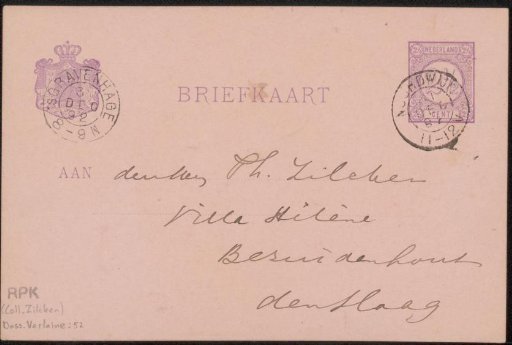 'SGRAVENHAGE
3
DEC
92
8-9N
BRIEFKAART
NEDERLAND
CENT
NOORDWIJK
11-12
AAN den Heer Ph. Zilcken
Villa Hélène
Bezuidenhout
den Haag
RPK
(Coll. Zilcken)
Doss. Verlaine: 52